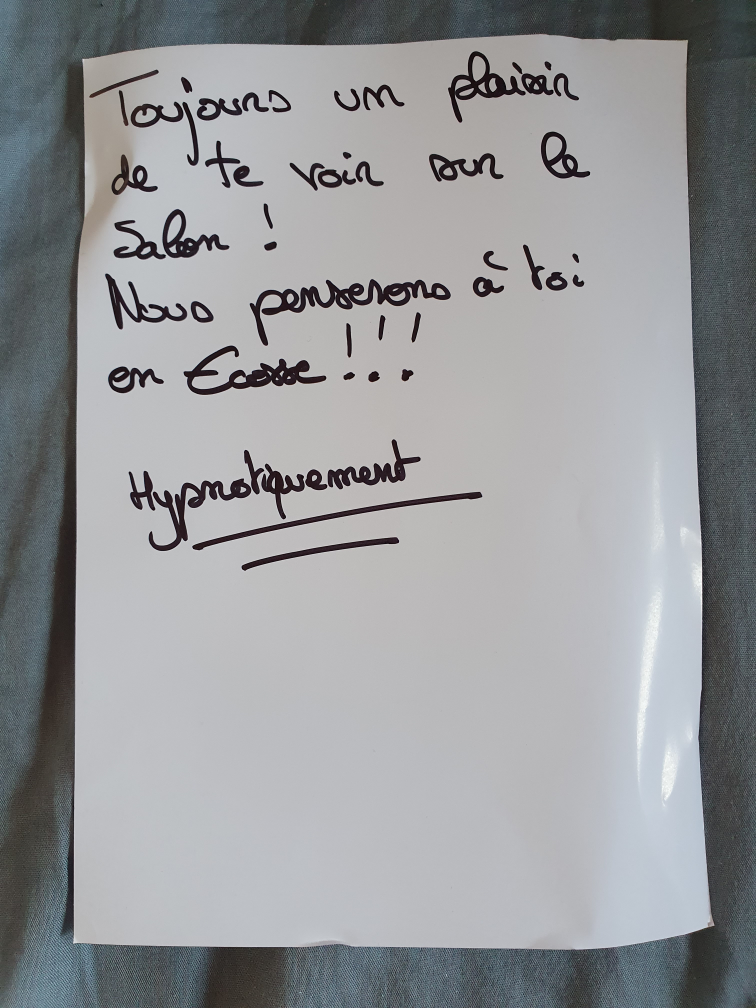 Toujours un plaisir
de te voir sur le
Salon !
Nous penserons à toi
en Ecosse !!!
Hypnotiquement